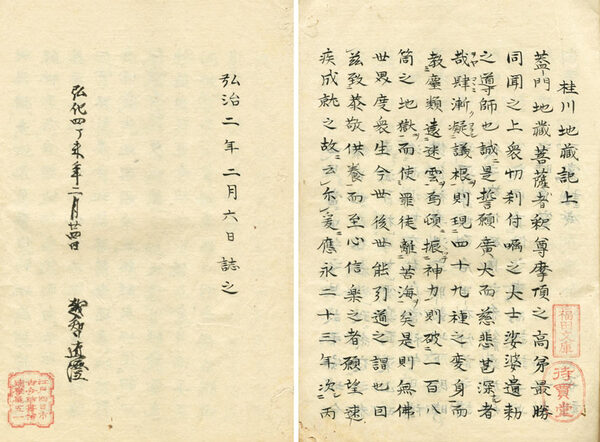 桂川地藏記上
蓋門地藏菩薩者釈尊摩頂之高弟最勝
同聞之上衆切利付囑之大士娑婆遺勅
之導師也誠是誓願廣大而慈悲甚深者
哉肆漸凝議根則現四十九種之変身而
教類遠迷雲振神力則破一百八
箇之地獄而使罪徒離苦海矣是則無佛
世界度衆生今世後世能引道之謂也回
茲致恭敬供養而至心信楽之者願望速
疾成就之故云尓爰應永二十三年次丙
福田文庫
待賈堂
弘治二年二月六日誌之
弘化四丁未年二月廿四日
越智直澄
江戸四日市
古今珍書儈
達摩屋五一